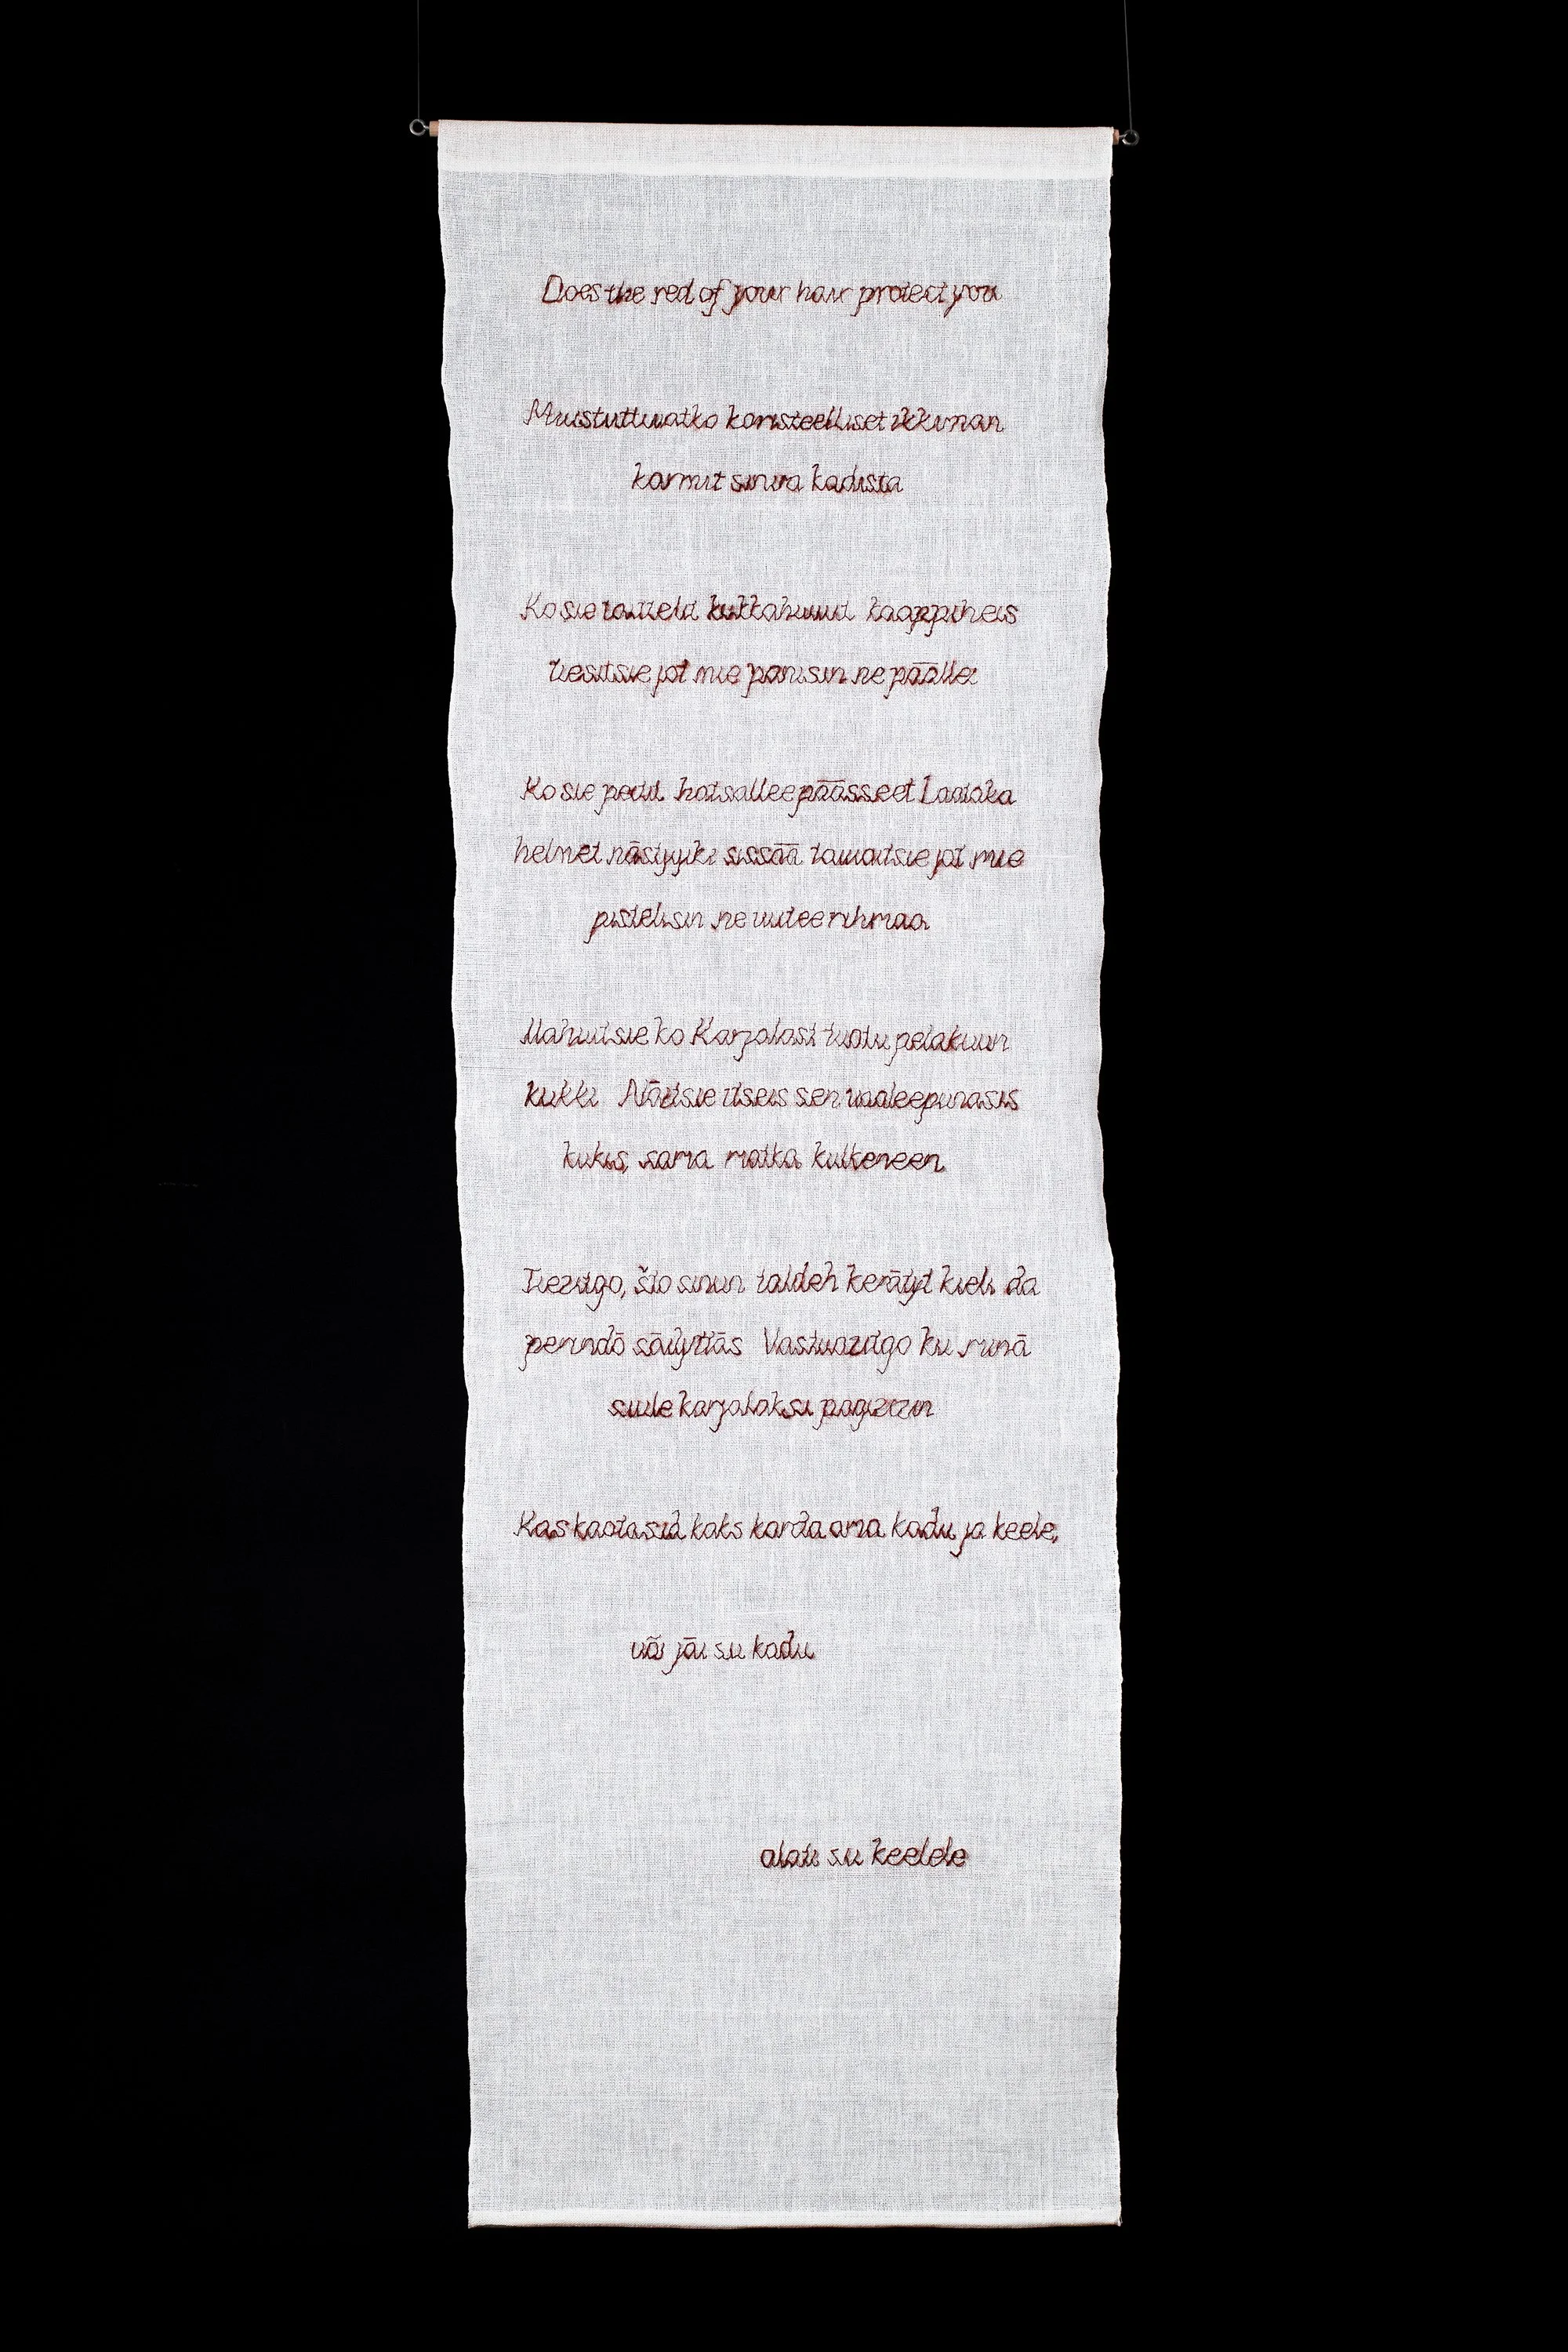 Does the red of your hair protect you
Muistuttivatko koristeelliset ikkunan
karmit sinua kadista
Ko sie taittelit kukkahuivit kaappiheis
tiesitsie jot mie panisin ne päälle
Ko sie petit hotsallee päässeet Laatoka
helmet nästyyki sissää tawoitsie jot mie
pistelisin ne uutee rihmaa
Näitsie ko Karjalast tuotu pelakuun
kukki Näitsie itseis sen vaaleepunasis
kukis, sama matka kulkeneen
Tiezitgo, što sinun taldeh kerätyt kieli da
perindö säilyttäs Vastuazitgo ku minä
siule karjalaksi pagizizin
Kas kaotasid kaks korda oma kodu ja keele,
või jäi su kodu
alati su keelde